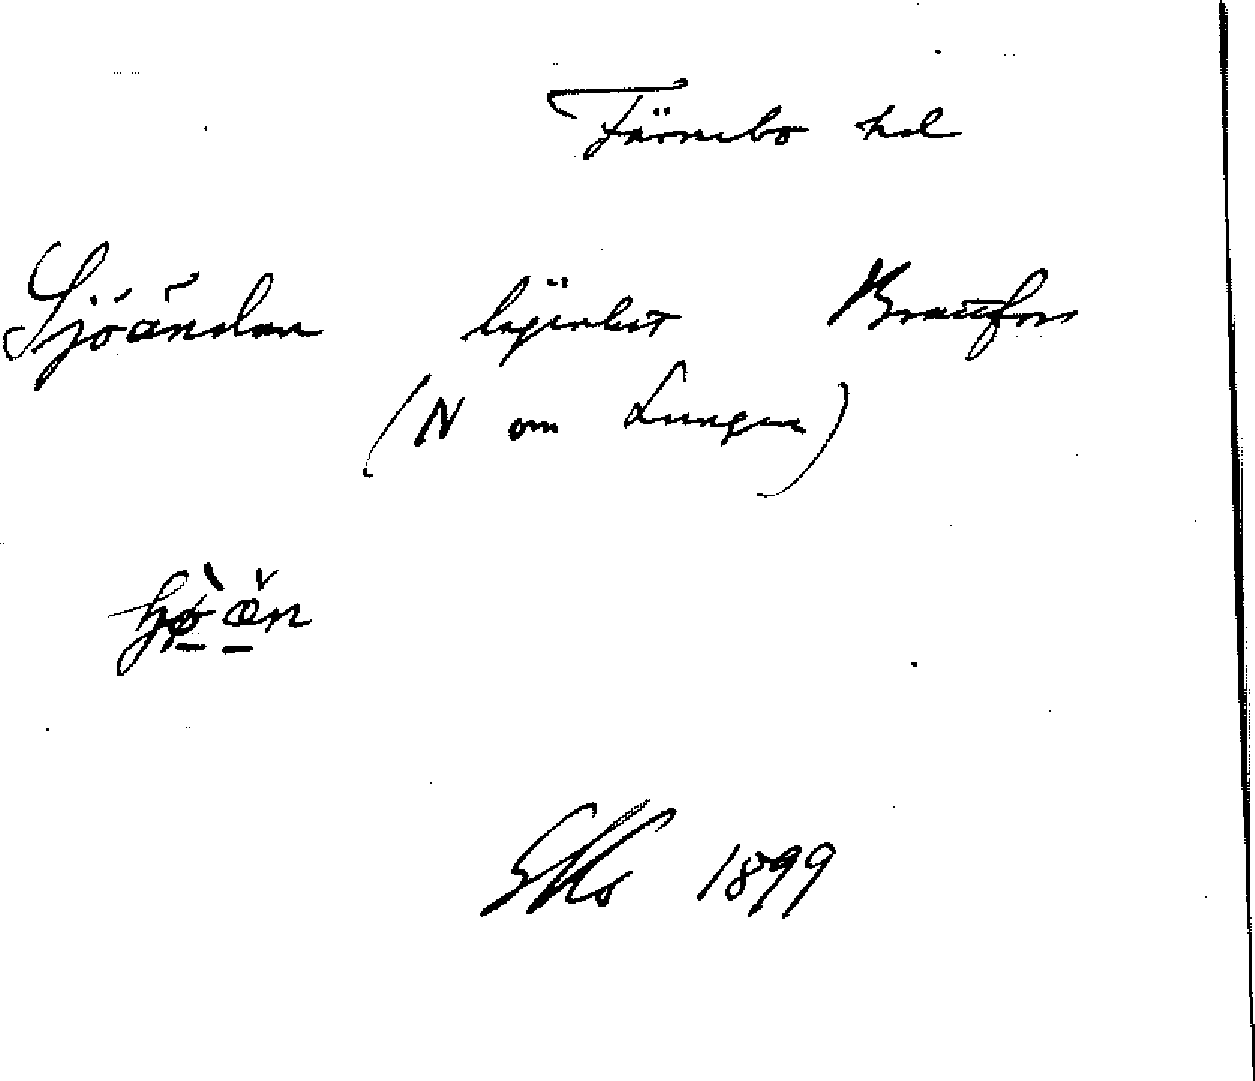 Färnebo hd
Sjöändan lägenhet Brattfors
(N om Lungen)
1899